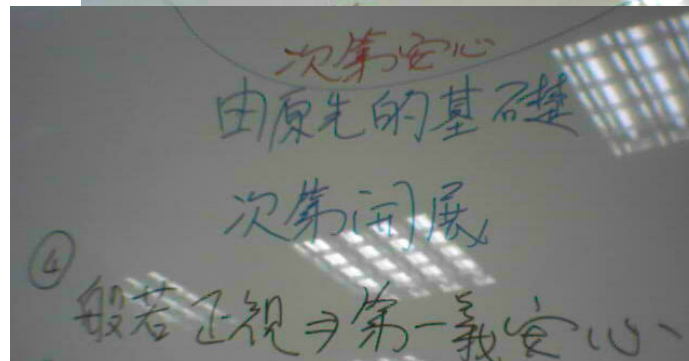 次第安心
由原先的基礎
次第開展
④
般若正視⇒第一義安心、